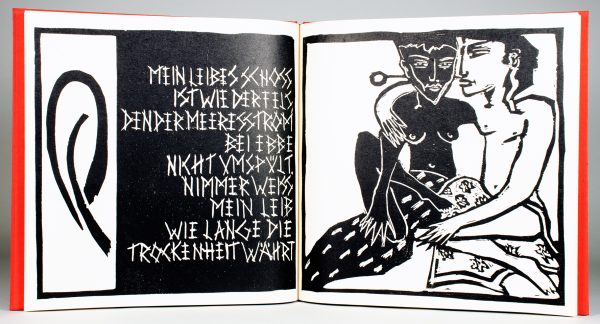 MEIN LEIBES SCHOSS
IST WIE DER FELS
DEN DER MEERESSTROM
BEI EBBE
NICHT VMSPÜLT,
NIMMER WEISS
MEIN LEIB
WIE LANGE DIE
TROCKENHEIT WÄHRT